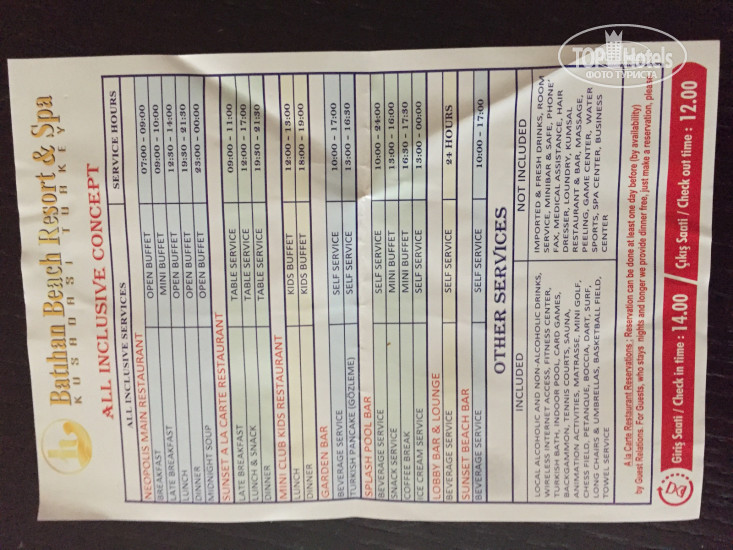 Batıhan Beach Resort & Spa
KUSADASI TURKEY
ALL INCLUSIVE CONCEPT
ALL INCLUSIVE SERVICES SERVICE HOURS
NEOPOLIS MAIN RESTAURANT
BREAKFAST OPEN BUFFET 07:00 - 09:00
LATE BREAKFAST MINI BUFFET 09:00 - 10:00
LUNCH OPEN BUFFET 12:30 - 14:00
DINNER OPEN BUFFET 19:30 - 21:30
MIDNIGHT SOUP OPEN BUFFET 23:00 - 00:00
SUNSET A LA CARTE RESTAURANT
LATE BREAKFAST TABLE SERVICE 09:00 - 11:00
LUNCH & SNACK TABLE SERVICE 12:00 - 17:00
DINNER TABLE SERVICE 19:30 - 21:30
MINI CLUB KIDS RESTAURANT
LUNCH KIDS BUFFET 12:00 - 13:00
DINNER KIDS BUFFET 18:00 - 19:00
GARDEN BAR
BEVERAGE SERVICE SELF SERVICE 10:00 - 17:00
TURKISH PANCAKE (GÖZLEME) SELF SERVICE 13:00 - 16:30
SPLASH POOL BAR
BEVERAGE SERVICE SELF SERVICE 10:00 - 24:00
SNACK SERVICE MINI BUFFET 13:00 - 16:00
COFFEE BREAK MINI BUFFET 16:30 - 17:30
ICE CREAM SERVICE SELF SERVICE 13:00 - 00:00
LOBBY BAR & LOUNGE
BEVERAGE SERVICE SELF SERVICE 24 HOURS
SUNSET BEACH BAR
BEVERAGE SERVICE SELF SERVICE 10:00 - 17:00
OTHER SERVICES
INCLUDED
LOCAL ALCOHOLIC AND NON-ALCOHOLIC DRINKS,
WIRELESS INTERNET ACCESS, FITNESS CENTER,
TURKISH BATH, INDOOR POOL, CARD GAMES,
BACKGAMMON, TENNIS COURTS, SAUNA,
ANIMATION ACTIVITIES, MATRASSE, MINI GOLF,
CHESS FIELD, PETANQUE, BOCCIA, DART, SURF,
LONG CHAIRS & UMBRELLAS, BASKETBALL FIELD,
TOWEL SERVICE
NOT INCLUDED
IMPORTED & FRESH DRINKS, ROOM
SERVICE, MINIBAR & SAFE, PHONE
FAX, MEDICAL ASSISTANCE, HAIR
DRESSER, LOUNDRY, KUMSAL
RESTAURANT & BAR, MASSAGE,
PEELING, GAME CENTER, WATER
SPORTS, SPA CENTER, BUSINESS
CENTER
A la Carte Restaurant Reservations : Reservation can be done at least one day before (by availability)
by Guest Relations. For Guests, who stays nights and longer we provide dinner free, just make a reservation, please
Giriş Saati / Check in time : 14.00 / Çıkış Saati / Check out time : 12.00
TOP Hotels
ФОТО ТУРИСТА